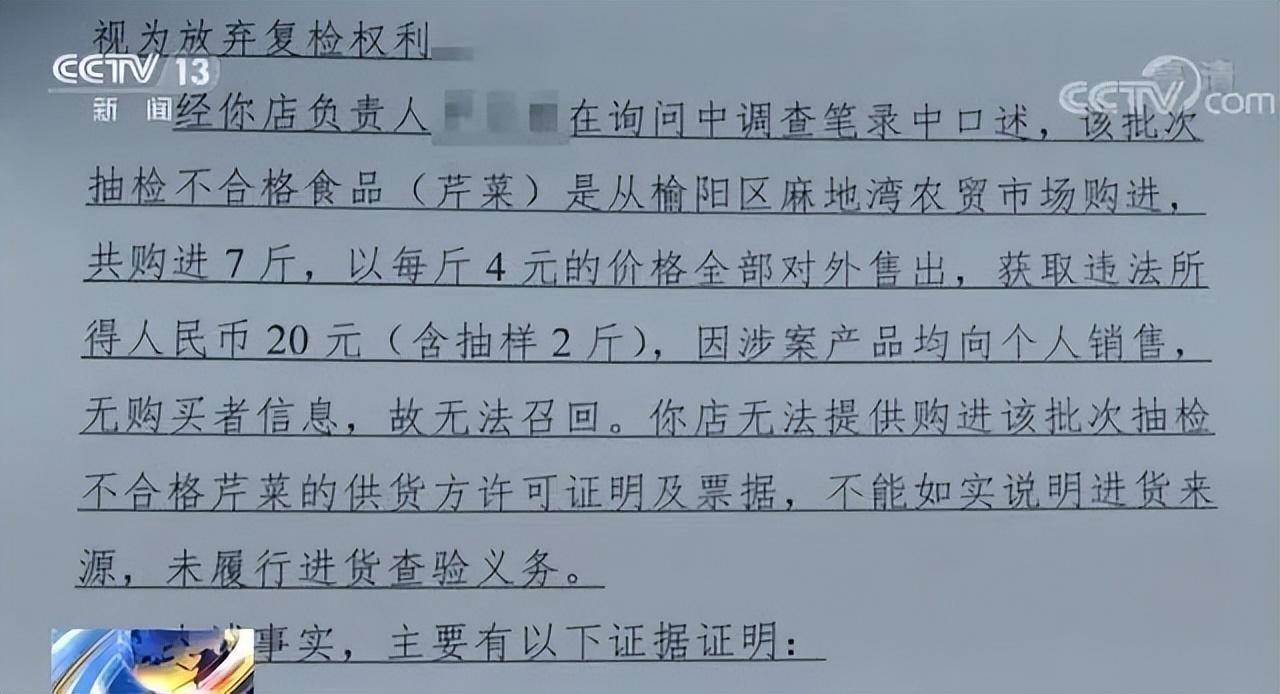 视为放弃复检权利
CCTV 13
新闻
CCTV com
经你店负责人 在询问中调查笔录中口述，该批次
抽检不合格食品（芹菜）是从榆阳区麻地湾农贸市场购进，
共购进7斤，以每斤4元的价格全部对外售出，获取违法所
得人民币20元（含抽样2斤），因涉案产品均向个人销售，
无购买者信息，故无法召回。你店无法提供购进该批次抽检
不合格芹菜的供货方许可证明及票据，不能如实说明进货来
源，未履行进货查验义务。
事实，主要有以下证据证明：